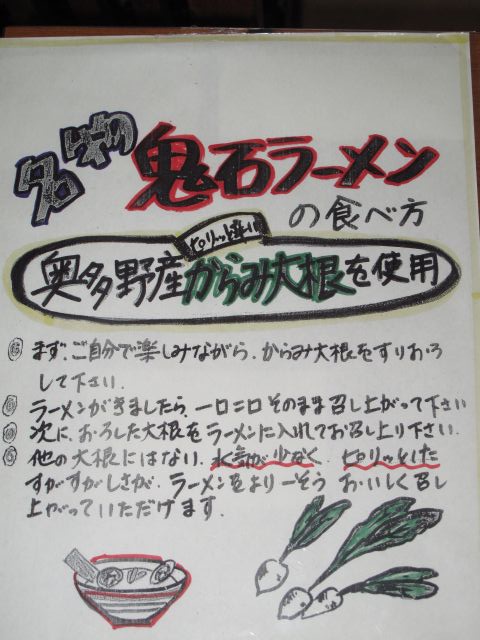 名物 鬼石ラーメン
の食べ方
ピリッと辛い
奥多野産からみ大根を使用
まず、ご自分で楽しみながら、からみ大根をすりおろ
して下さい.
ラーメンがきましたら、一口二口そのまま召し上がって下さい
次に、おろした大根をラーメンに入れてお召し上り下さい.
他の大根にはない、水気が少なく、ピリッとした
すがすがしさが、ラーメンをより一そう おいしく召し
上がっていただけます.